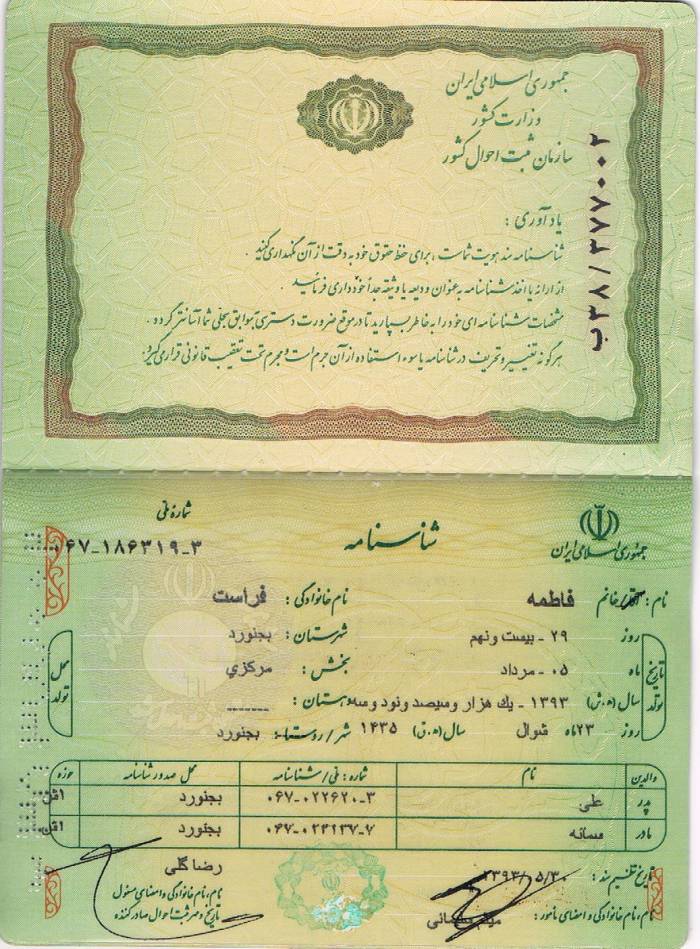 جمهوری اسلامی ایران
وزارت کشور
سازمان ثبت احوال کشور
ب۳۸/۳۷۷۰۰۲
یادآوری :
شناسنامه سند هویت شماست ، برای حفظ حقوق خود به دقت از آن نگهداری کنید .
از ارائه یا اخذ شناسنامه به عنوان ودیعه یا وثیقه جداً خودداری فرمائید .
مشخصات شناسنامه ای خود را به خاطر بسپارید تا در موقع ضرورت دسترسی به سوابق سجلی شما آسانتر گردد .
هرگونه تغییر و تحریف در شناسنامه یا سوء استفاده از آن جرم است و مجرم تحت تعقیب قانونی قرار می گیرد :
جمهوری اسلامی ایران
شناسنامه
شماره ملی
۰۶۷-۱۸۶۳۱۹-۳
نام : آقا/خانم فاطمه نام خانوادگی : فراست
تاریخ تولد
روز ۲۹ - بیست ونهم
ماه ۰۵ - مرداد
سال (ه.ش) ۱۳۹۳ - یک هزار وسیصد ونود وسه
روز ۲۳ ماه شوال سال (ه.ق) ۱۴۳۵
محل تولد
شهرستان : بجنورد
بخش : مرکزي
دهستان : -------
شهر/روستا : بجنورد
والدین نام شماره : ملی/شناسنامه محل صدور شناسنامه حوزه
پدر علی ۰۶۷-۰۲۲۶۲۰-۳ بجنورد
مادر ۰۶۷-۰۲۴۱۳۷-۷ بجنورد
تاریخ تنظیم سند : ۱۳۹۳/۰۵/۳۰
نام ، نام خانوادگی و امضای مأمور : میثم
رضا گلی
نام ، نام خانوادگی و امضای مسئول
تاریخ و مهر ثبت احوال صادر کننده